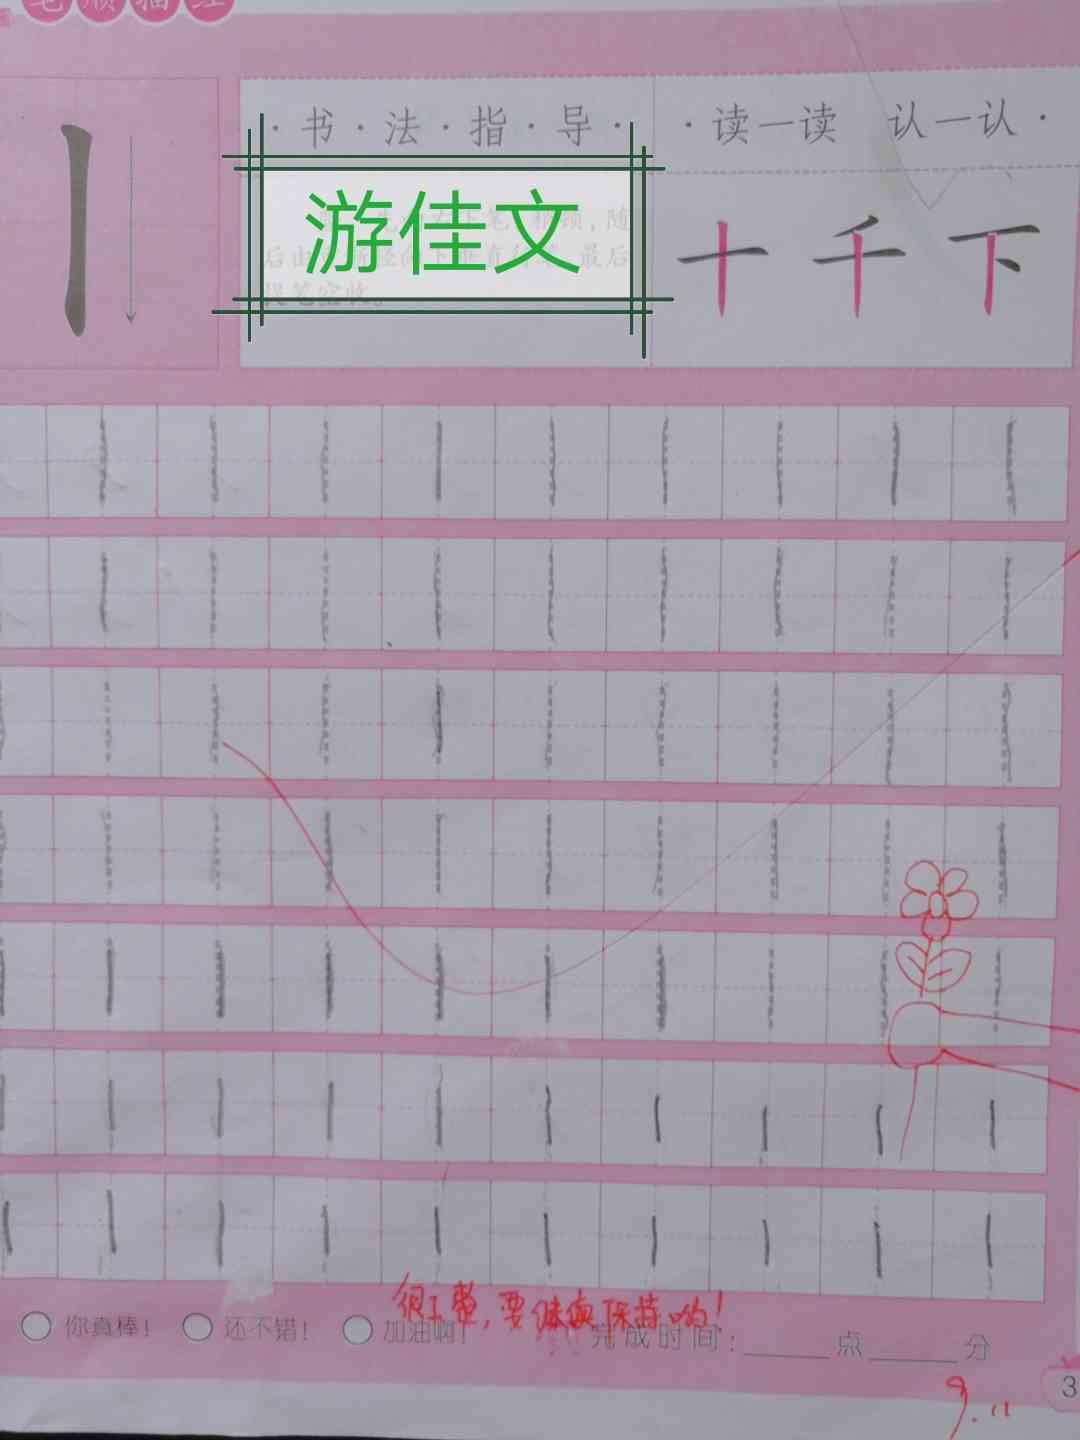 笔顺描红
·书·法·指·导·
·读一读 认一认·
游佳文
十 千 下
你真棒！ 还不错！ 加油啊！
很工整，要继续保持哟！
完成时间：______点______分
3
9.11